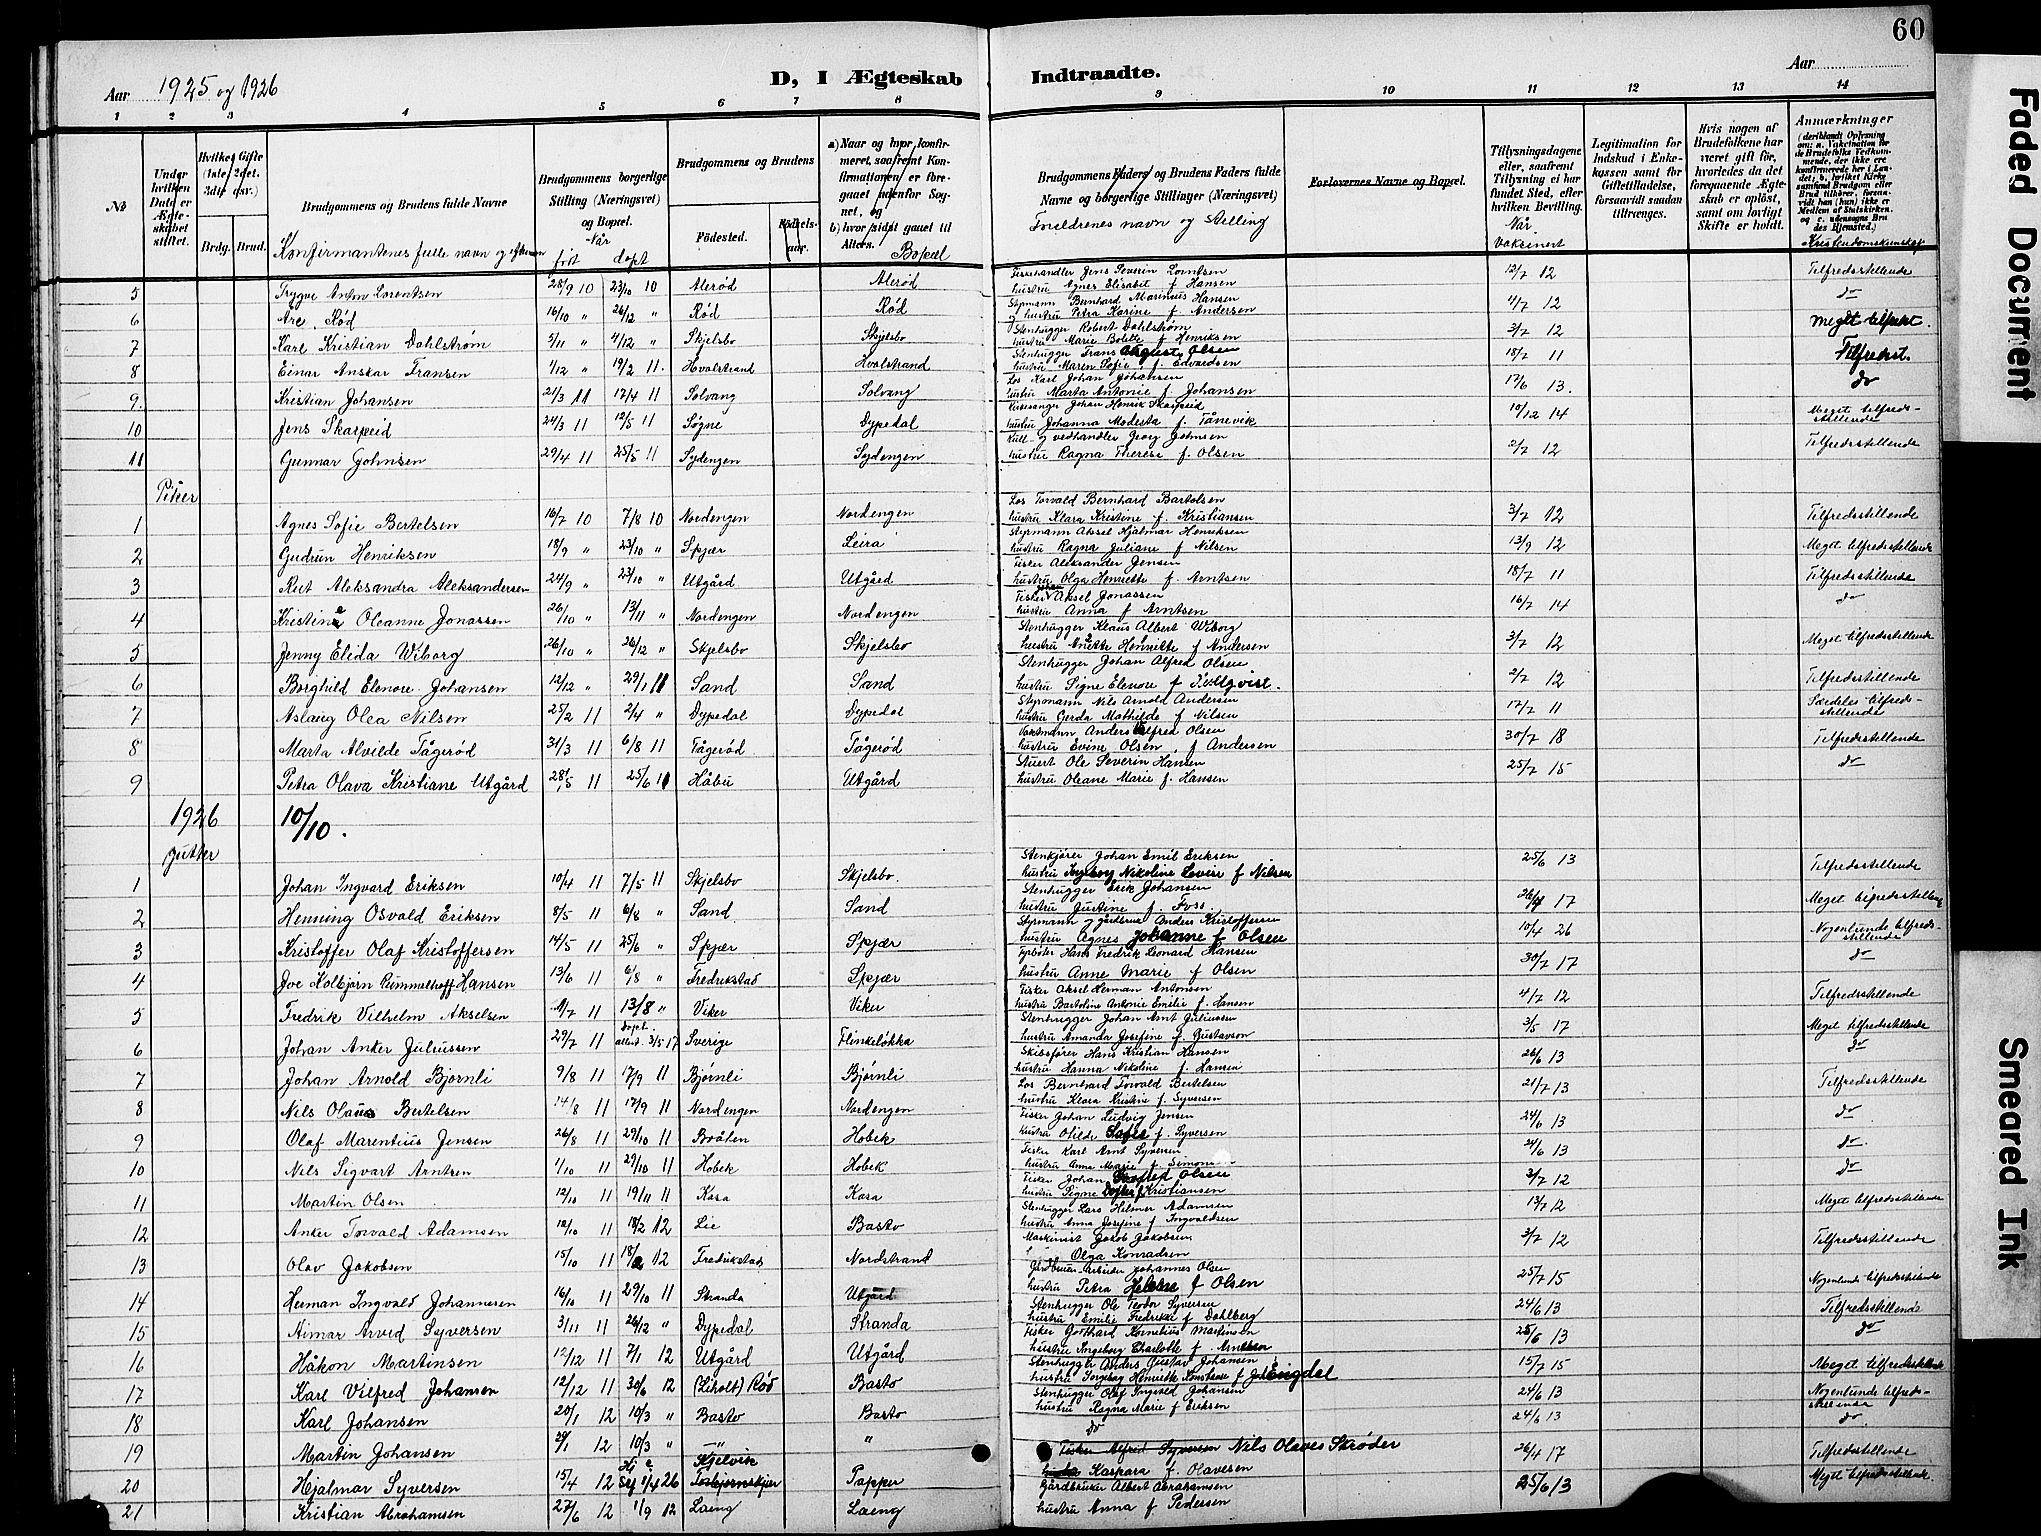 60
Aar 1925 og 1926
D, I Ægteskab Indtraadte.
Aar
1 2 3 4 5 6 7 8 9 10 11 12 13 14
№
Under hvilken Dato er Ægteskabet stiftet.
Hvilket Gifte (1ste, 2det, 3die osv.)
Brdg. Brud.
Brudgommens og Brudens fulde Navne
Konfirmantenes fulle navn og
Brudgommens borgerlige Stilling (Næringsvei) og Bopæl.
Når
født døpt
Brudgommens og Brudens
Födested. Födsels-aar.
a) Naar og hvor konfirmeret, saafremt Konfirmationen er foregaaet udenfor Sognet, og
b) hvor sidst gaaet til Alters.
Bopæl
Brudgommens Faders og Brudens Faders fulde Navne og borgerlige Stillinger (Næringsvei)
Foreldrenes navn og stilling
Forlovernes Navne og Bopæl.
Tillysningsdagene eller, saafremt Tillysning ei har fundet Sted, efter hvilken Bevilling.
Når vaksinert
Legitimation for Indskud i Enkekassen samt for Giftetilladelse, forsaavidt saadan tiltrenges.
Hvis nogen af Brudefolkene har været gift før, hvorledes da det foregaaende Ægteskab er opløst, samt om lovligt Skifte er holdt.
Anmærkninger
Kristendomskunnskap
5 Trygve Anton Lorentsen 28/9 10 23/10 10 Alerød Alerød Fiskehandler Jens Severin Lorntsen hustru Agnes Elisabet f Hansen 12/7 12 Tilfredsstillende
6 Are Rød 16/10 " 26/12 " Rød Rød Styrmann Bernhard Marinius Hansen og hustru Petra Karine f. Andersen 4/7 12 do
7 Karl Kristian Dahlstrøm 5/11 " 4/12 " Skjelsbo Skjelsbo Stenhugger Robert Dahlstrøm hustru Marie Bolette f Henriksen 3/7 12 Meget tilfredst.
8 Einar Anskar Fransen 1/12 " 19/2 11. Hvalstrand Hvalstrand Stenhugger Frans August Olsen hustru Maren Sofie f. Edvardsen 18/7 11 Tilfredst.
9. Kristian Johansen 21/3 11 17/4 11 Solvang Solvang Los Karl Johan Johansen hustru Marta Antonie f Johansen 17/6 13. do
10 Jens Skarpeid 24/3 11 12/5 11 Søgne Dypedal Johan Henrik Skarpeid hustru Johanna Modesta f. Tånevik 10/12 14 Meget tilfredsstillende
11 Gunnar Johnsen 29/4 11 25/5 11 Sydengen Sydengen Kull- og vedhandler Georg Johnsen hustru Ragna Therese f. Olsen 2/7 12 Tilfredsstillende
Piker
1 Agnes Sofie Bertelsen 16/7 10 7/8 10 Nordengen Nordengen Los Torvald Bernhard Bartolsen hustru Klara Kristine f. Kristiansen 3/7 12 Tilfredsstillende
2 Gudrun Henriksen 18/9 " 23/10 " Spjær Leira Styrmann Aksel Hjalmar Henriksen hustru Ragna Juliane f Nilsen 13/9 12 Meget tilfredsstillende
3 Rut Aleksandra Aleksandersen 24/9 " 23/10 " Utgård Utgård Fisker Aleksander Jensen hustru Olga Henriette f. Arntsen 18/7 11 Tilfredsstillende
4 Kristine Oleanne Jonassen 26/10 " 13/11 " Nordengen Nordengen Fisker Aksel Jonassen hustru Anna f Arntsen 16/7 14 do
5 Jenny Elida Wiborg 26/10 " 26/12 " Skjelsbo Skjelsbo Stenhugger Klaus Albert Wiborg hustru Anette Henriette f Andersen 3/7 12 Meget tilfredsstillende
6 Borghild Elenore Johansen 12/12 " 29/1 11 Sand Sand Stenhugger Johan Alfred Olsen hustru Signe Elenore f 2/7 12 Tilfredsstillende
7 Aslaug Olea Nilsen 25/2 11 2/4 " Dypedal Dypedal Styrmann Nils Arnold Andersen hustru Gerda Mathilde f Nilsen 17/7 11 Særdeles tilfredsstillende
8 Marta Alvilde Tågerød 31/3 11 6/8 11 Tågerød Tågerød Vaktmann Anders Alfred Olsen hustru Evine Olsen f Andersen 30/7 18 Tilfredsstillende
9 Petra Olava Kristiane Utgård 28/5 11 25/6 11 Håbu Utgård Stuert Ole Severin Hansen hustru Oleane Marie f. Hansen 25/7 15 do
1926 10/10.
Gutter
1 Johan Ingvard Eriksen 10/4 11 7/5 11 Skjelsbo Skjelsbo. Stenkjører Johan Emil Eriksen hustru Ingborg Nikoline Lovise f Nilsen 25/6 13 Tilfredsstillende
2 Henning Osvald Eriksen 8/5 11 6/8 " Sand Sand Stenhugger Erik Johansen hustru Justine f. Foss. 26/4 17 Meget tilfredsstillende
3 Kristoffer Olaf Kristoffersen 14/5 11 25/6 " Spjær Spjær Styrmann og gårdbruker Anders Kristoffersen hustru Agnes Johanne f Olsen 10/4 26 Nogenlunde tilfredsstillende
4 Hansen 13/6 11 6/8 " Fredrikstad Spjær Fyrbøter Hans Fredrik Leonard Hansen hustru Anne Marie f Olsen 30/7 17 do
5 Fredrik Vilhelm Akselsen 1/7 11 13/8 " Viker Viker Fisker Aksel Herman Antonsen hustru Bartoline Antonie Emilie f. Hansen 4/7 12 Tilfredsstillende
6 Johan Anker Juliussen 29/7 11 3/5 17 Sverige Flinkeløkka Stenhugger Johan Arnt Juliussen hustru Amanda Josefine f Gustavson 3/5 17 Meget tilfredsstillende
7 Johan Arnold Bjørnli 9/8 11 17/9 11 Bjørnli Bjørnli Skibsfører Hans Kristian Hansen hustru Hanna Nikoline f. Hansen 26/6 13 do
8 Nils Olaus Bertelsen 14/8 11 17/9 11 Nordengen Nordengen Los Bernhard Torvald Bertelsen hustru Klara Kristine f. Syversen 21/7 13 Tilfredsstillende
9 Olaf Marentius Jensen 26/8 11 29/10 11 Bråten Hobek Fisker Johan Ludvig Jensen hustru Otilde Sofie f. Syversen 24/6 13 do
10 Nils Sigvart Arntsen 1/10 11 29/10 11 Hobek Hobek Fisker Karl Arnt Syversen hustru Anna Marie f. Simons 24/6 13 do
11 Martin Olsen 12/10 11 19/11 11 Kasa Kasa Fisker Johan Olsen hustru Signe f Kristiansen 3/7 12 do
12 Anker Torvald Adamsen 12/10 11 18/2 12 Lie Basto Stenhugger Lars Helmer Adamsen hustru Anna Josefine f Ingvaldsen 13/7 12 Meget tilfredsstillende
13 Olav Jakobsen 15/10 11 18/2 12 Fredrikstad Nordstrand Maskinist Jakob Jakobsen Olga Konradsen 3/7 12 Tilfredsstillende
14 Herman Ingvald Johannesen 16/10 11 29/10 11 Stranda Utgård Johannes Olsen hustru Petra Helene f Olsen 25/7 15 Nogenlunde tilfredsstillende
15 Aimar Arvid Syversen 3/11 11 26/12 " Dypedal Stranda Stenhugger Ole Teodor Syversen hustru Emilie Fredrikke f Dahlberg 24/6 13 Tilfredsstillende
16 Håkon Martinsen 12/12 11 7/1 12 Utgård Utgård Fisker Gotthard Kornelius Martinsen hustru Ingeborg Charlotte f. Arntsen 25/6 13 do
17 Karl Vilfred Johansen 12/12 11 30/6 12 (Liholt) Rød Basto Stenhugger Anders Gustav Johansen hustru Ingeborg Henriette f Engdal 15/7 15 Meget tilfredsstillende
18 Karl Johansen 20/1 12 10/3 " Basto Basto Stenhugger Olaf Ingvald Johansen hustru Ragna Marie f Eriksen 24/6 13 Nogenlunde tilfredsstillende
19 Martin Johansen 20/1 12 10/3 " — " — " do 24/6 13 do.
20 Hjalmar Syversen 15/4 12 1/4 26 Kjelvik Torbjørnskjær Papper Fisker Alfred Syversen Nils Olaves Skrøder hustru Kaspara f. Olavesen 26/4 17 Tilfredsstillende
21 Kristian Abrahamsen 27/6 12 1/9 12 Laeng Laeng Gårdbruker Albert Abrahamsen hustru Anna f Pedersen 25/6 13 Meget tilfredsstillende.
Faded Document
Smeared Ink